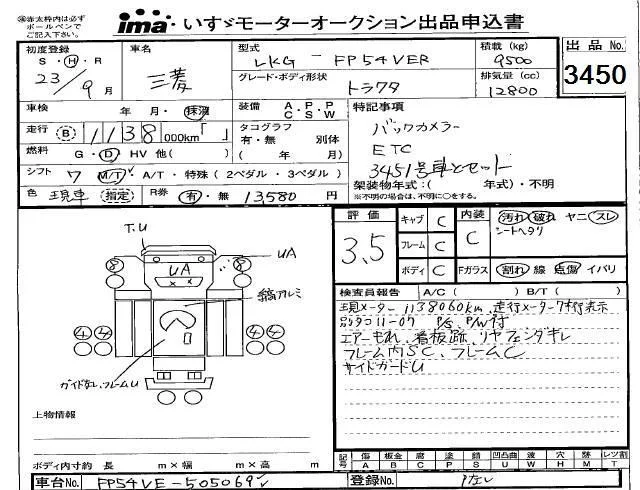 ※赤太枠内は必ず
ボールペンで
ご記入下さい。
ima いすゞモーターオークション出品申込書
初度登録
S・H・R
23/9月
車名
三菱
型式
LKG-FP54VER
積載(kg)
9500
出品No.
3450
グレード・ボディ形状
トラクタ
排気量(cc)
12800
車検 年 月・抹消
装備 A・P・P
C・S・W
特記事項
走行 B 1138 000km「 」
タコグラフ
有・無 別体
バックカメラー
燃料 G・D HV 他( )
( 年 月)
ETC
シフト 7 M/T・A/T・特殊(2ペダル・3ペダル)
3451号車とセット
架装物年式:( 年式)・不明
※不明の場合は、不明に○をする。
色 現車 指定 R券 有・無 13,580円
評価
3.5
キャブ C
内装 C
汚れ 破れ ヤニ スレ
シートヘタリ
フレーム C
ボディ C
Fガラス 割れ 線 点傷 イバリ
T.U
8
8
UA
UA
縞アルミ
4 4
4 4
ガイドなし、フレームU
検査員報告 A/C( ) B/T( )
現メーター1138060km、走行メーター7桁表示
11-07 P/S、P/W付
エアーもれ、看板跡、リヤフェンダキレ
フレーム内SC、フレームC
サイドガードU
上物情報
ボディ内寸約 長 m×幅 m×高 m
記号 傷A 板金B 腐C 塗P 錆S 凹U 凸凹曲U 波W 穴H 跡M レンズ割T
車台No. FP54VE-505069
登録No. なし